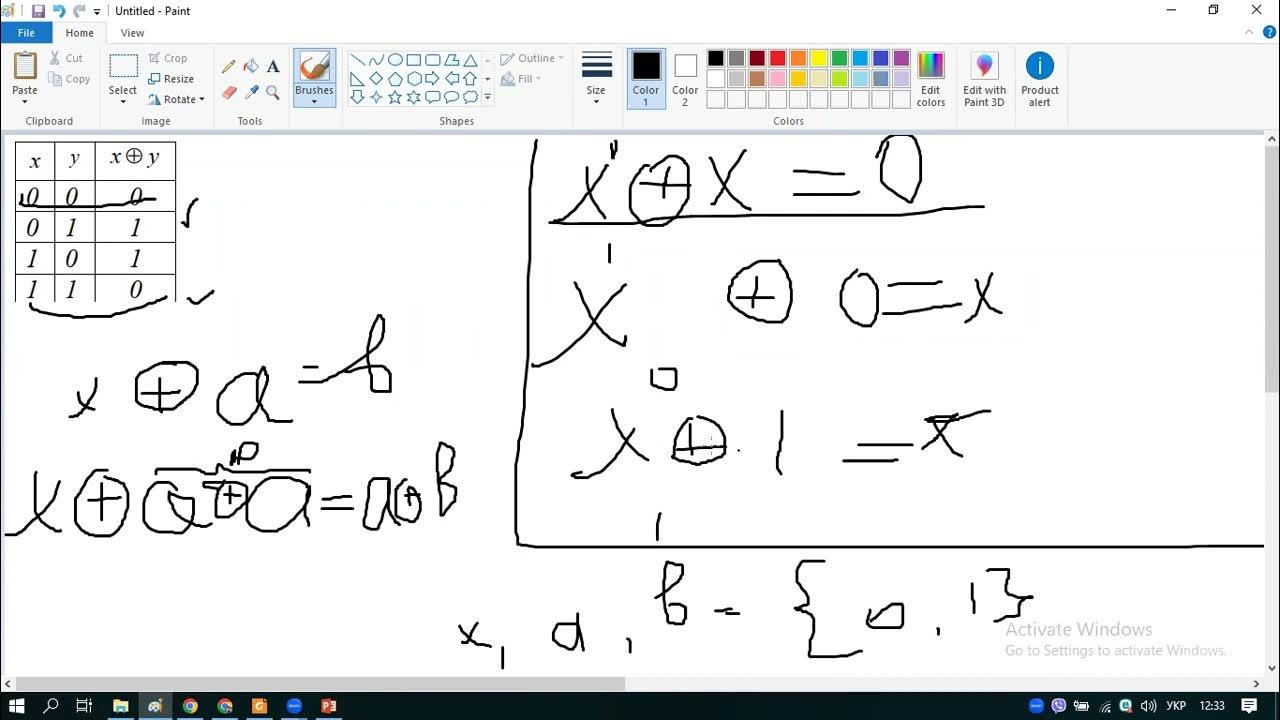 Untitled - Paint
File Home View
Paste
Cut
Copy
Clipboard
Select
Crop
Resize
Rotate
Image
A
Tools
Brushes
Outline
Fill
Shapes
Size
Color 1
Color 2
Edit colors
Colors
Edit with Paint 3D
Product alert
x y x ⊕ y
0 0 0
0 1 1
1 0 1
1 1 0
x ⊕ a = b
0
x ⊕ a ⊕ a = a ⊕ b
x ⊕ x = 0
1
x ⊕ 0 = x
0
x ⊕ 1 = x̄
1
x, a, b = {0, 1}
Activate Windows
Go to Settings to activate Windows.
УКР 12:33